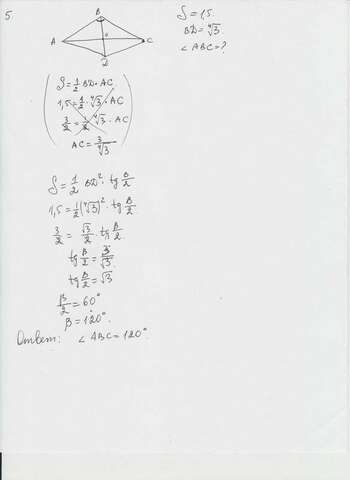 5.
B
A O C
D
S = 1.5.
BD = ∜3
∠ABC = ?
S = 1/2 BD · AC
1,5 = 1/2 · ∜3 · AC
3/2 = 1/2 ∜3 · AC
AC = 3/∜3
S = 1/2 BD² · tg B/2
1,5 = 1/2 (∜3)² · tg B/2
3/2 = √3/2 · tg B/2
tg B/2 = 3/√3
tg B/2 = √3
B/2 = 60°
B = 120°
Ответ: ∠ABC = 120°.